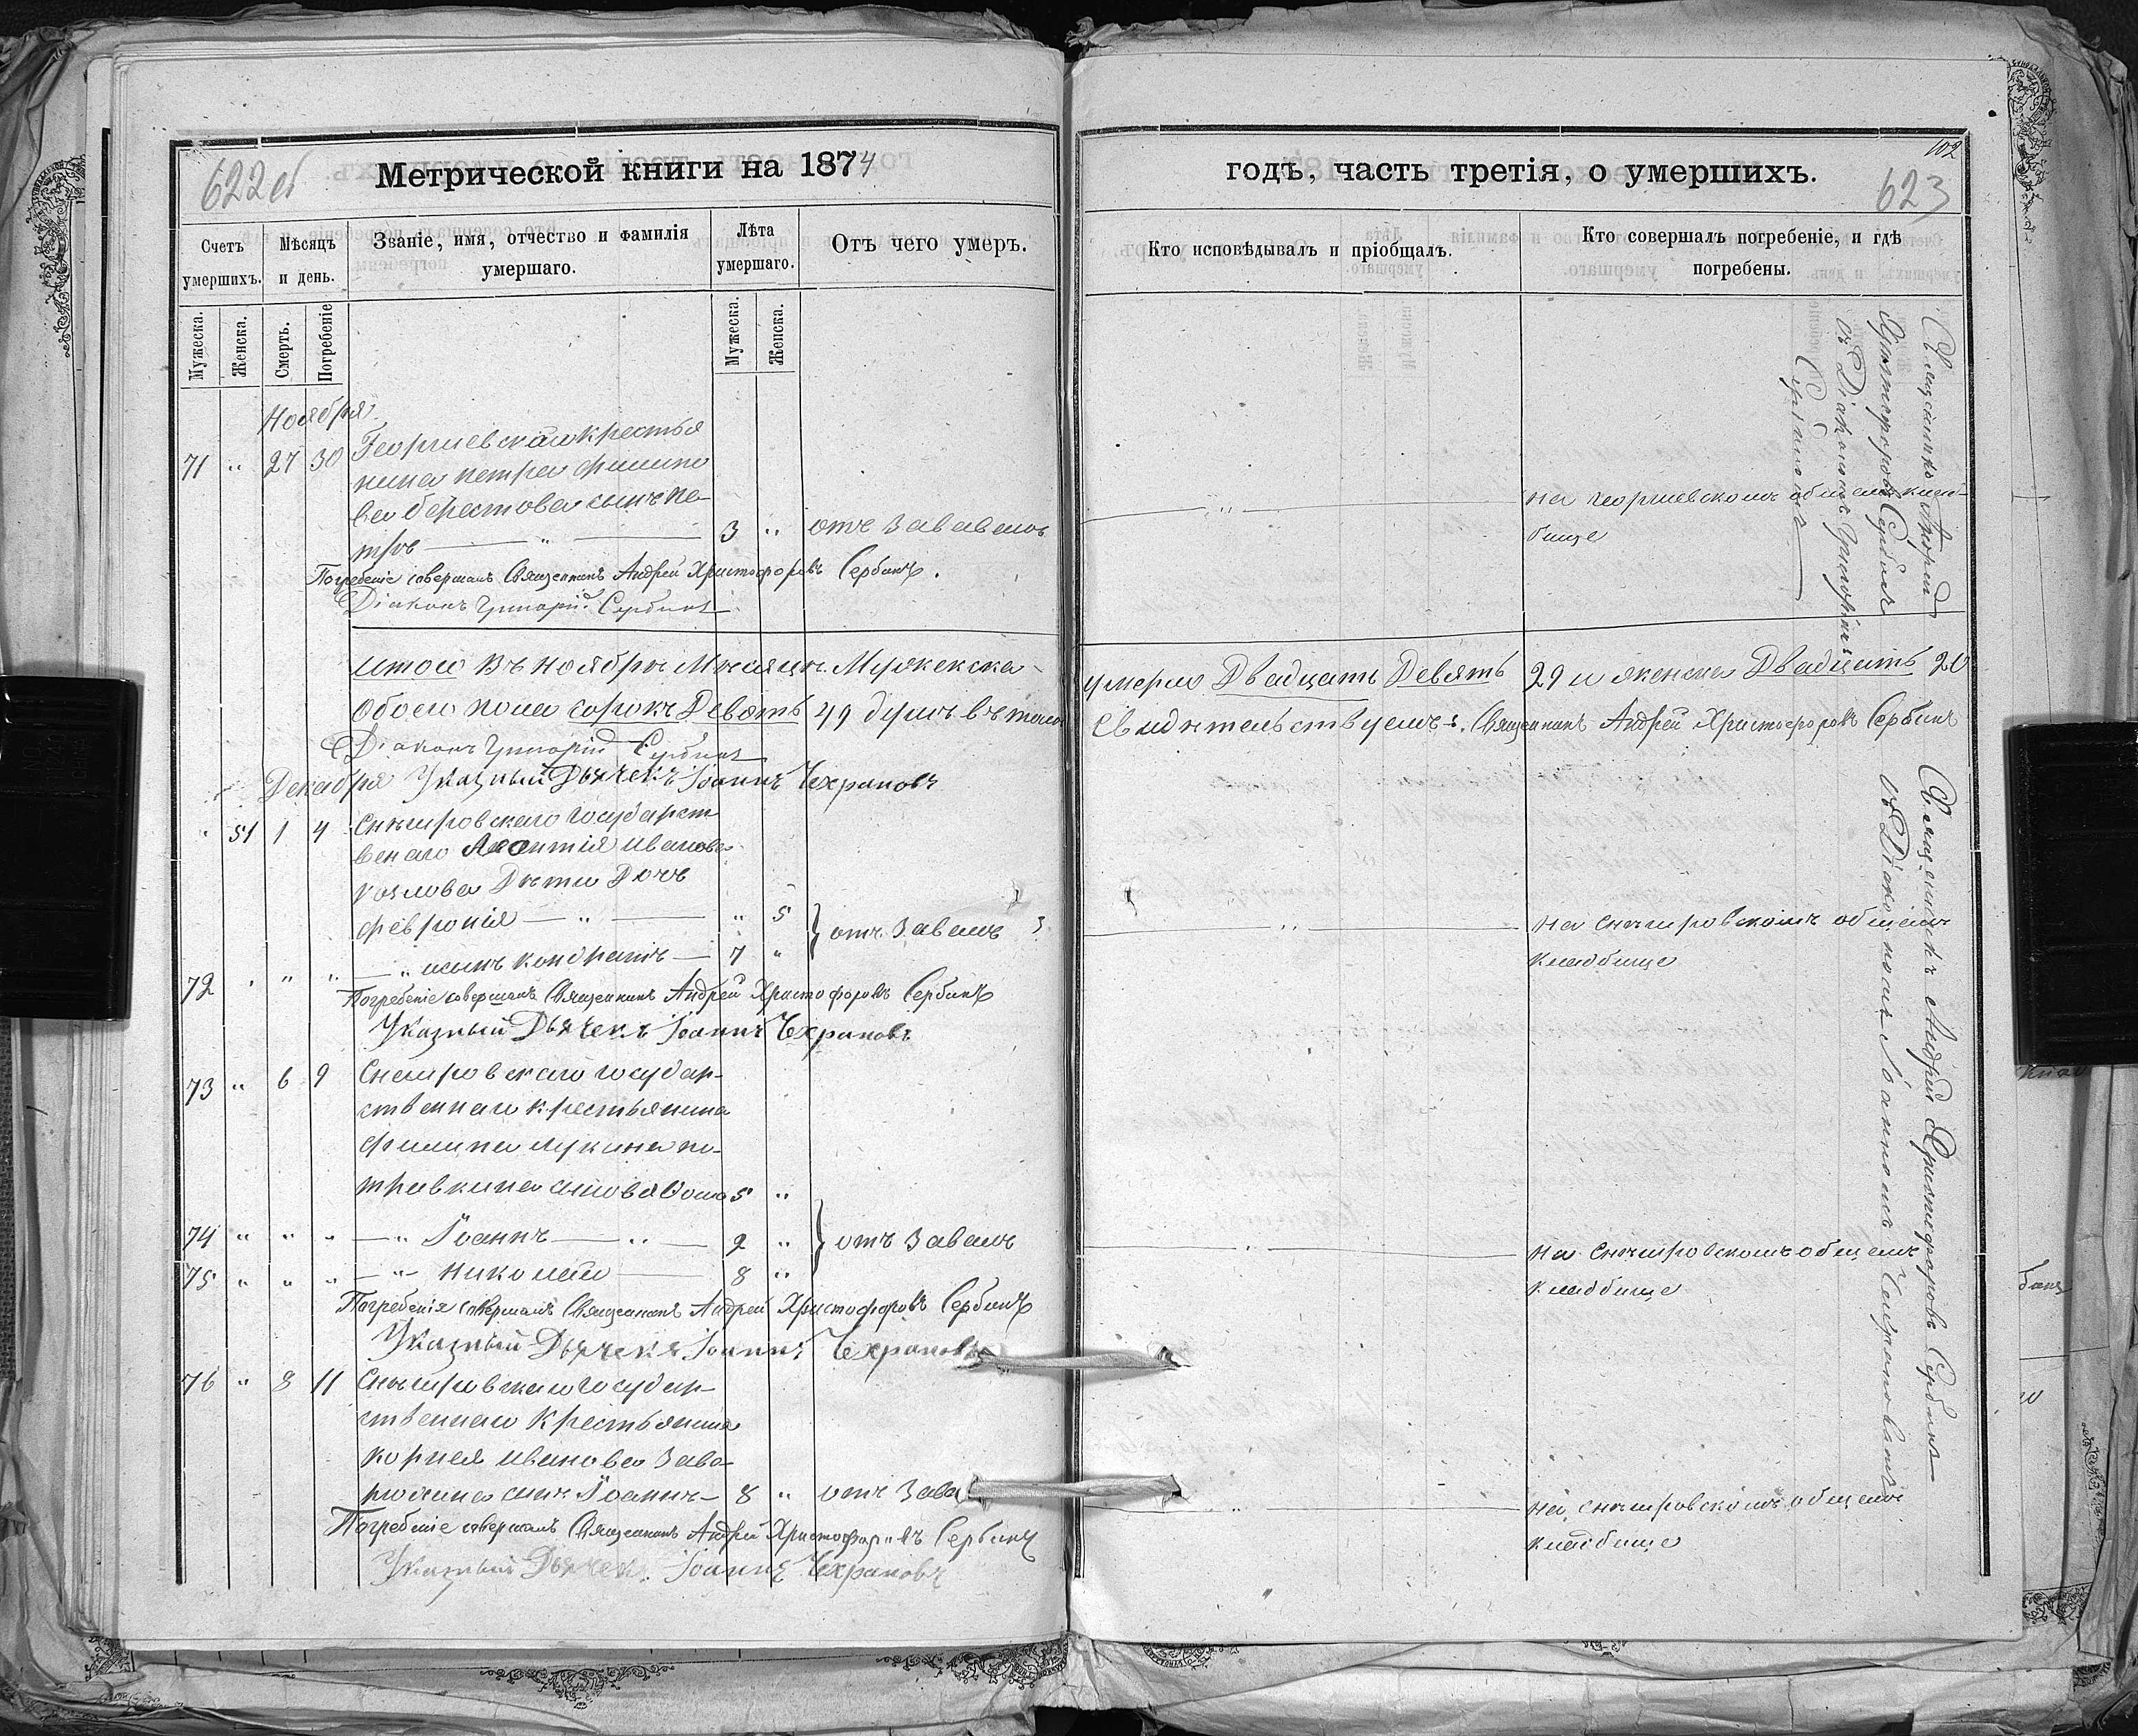 622об
Метрической книги на 1874
Счетъ умершихъ.
Мѣсяцъ и день.
Званіе, имя, отчество и фамилія умершаго.
Лѣта умершаго.
Отъ чего умеръ.
Мужеска.
Женска.
Смерть.
Погребеніе
Мужеска.
Женска.
Ноября
71 " 27 30 Георгиевскаго крестья
нина петра филипо
ва берестова сынъ пе-
тръ — " — 3 " отъ Завалокъ
Погребеніе совершалъ Священникъ Андрей Христофоровъ Сербинъ.
Діаконъ Григорій Сербинъ
итого въ ноябрѣ Мѣсяцѣ Мужеска
обоего пола сорокъ Девять 49 душъ въ томъ
Діаконъ Григорій Сербинъ
Декабря Указный Дьячекъ Іоаннъ Чехрановъ
" 51 1 4 Снѣгировскаго государст
венаго Леонтія иванова
козлова Дѣти Дочь
февронія — " — " 5
72 " " " — " исынъ кондратъ — 7 " } отъ Завалъ
Погребеніе совершалъ Священникъ Андрей Христофоровъ Сербинъ
Указный Дьячекъ Іоаннъ Чехрановъ
73 " 6 9 Снегировскаго государ-
ственнаго крестьянина
филипа лукина
5 "
74 " " " — " Іоаннъ — " — 2 " } отъ Завалъ
75 " " " — " николай — 8 "
Погребенія совершалъ Священникъ Андрей Христофоровъ Сербинъ
Указный Дьячекъ Іоаннъ Чехрановъ
76 " 8 11 Снѣгировскаго государ-
ственнаго Крестьянина
корнея иванова Заво
сынъ Іоаннъ — 8 " отъ Зава
Погребеніе совершалъ Священникъ Андрей Христофоровъ Сербинъ
Указный Дьячекъ Іоаннъ Чехрановъ
102
годъ, часть третія, о умершихъ.
623
Кто исповѣдывалъ и пріобщалъ.
Кто совершалъ погребеніе, и гдѣ погребены.
— " — на георгиевскомъ общемъ клад-
бище
Священникъ Андрей
Христофоровъ Сербинъ
съ Діакономъ Григоріемъ
Сербинымъ
умерло Двадцать Девять 29 и женска Двадцать 20
Свидѣтельствуемъ. Священникъ Андрей Христофоровъ Сербинъ
— " — на снѣгировскомъ общемъ
кладбище
— " — на Снѣгировскомъ общемъ
кладбище
— " — на снѣгировскомъ общемъ
кладбище
Священникъ Андрей Христофоровъ Сербинъ
съ Діакономъ Іоанномъ Чехрановымъ